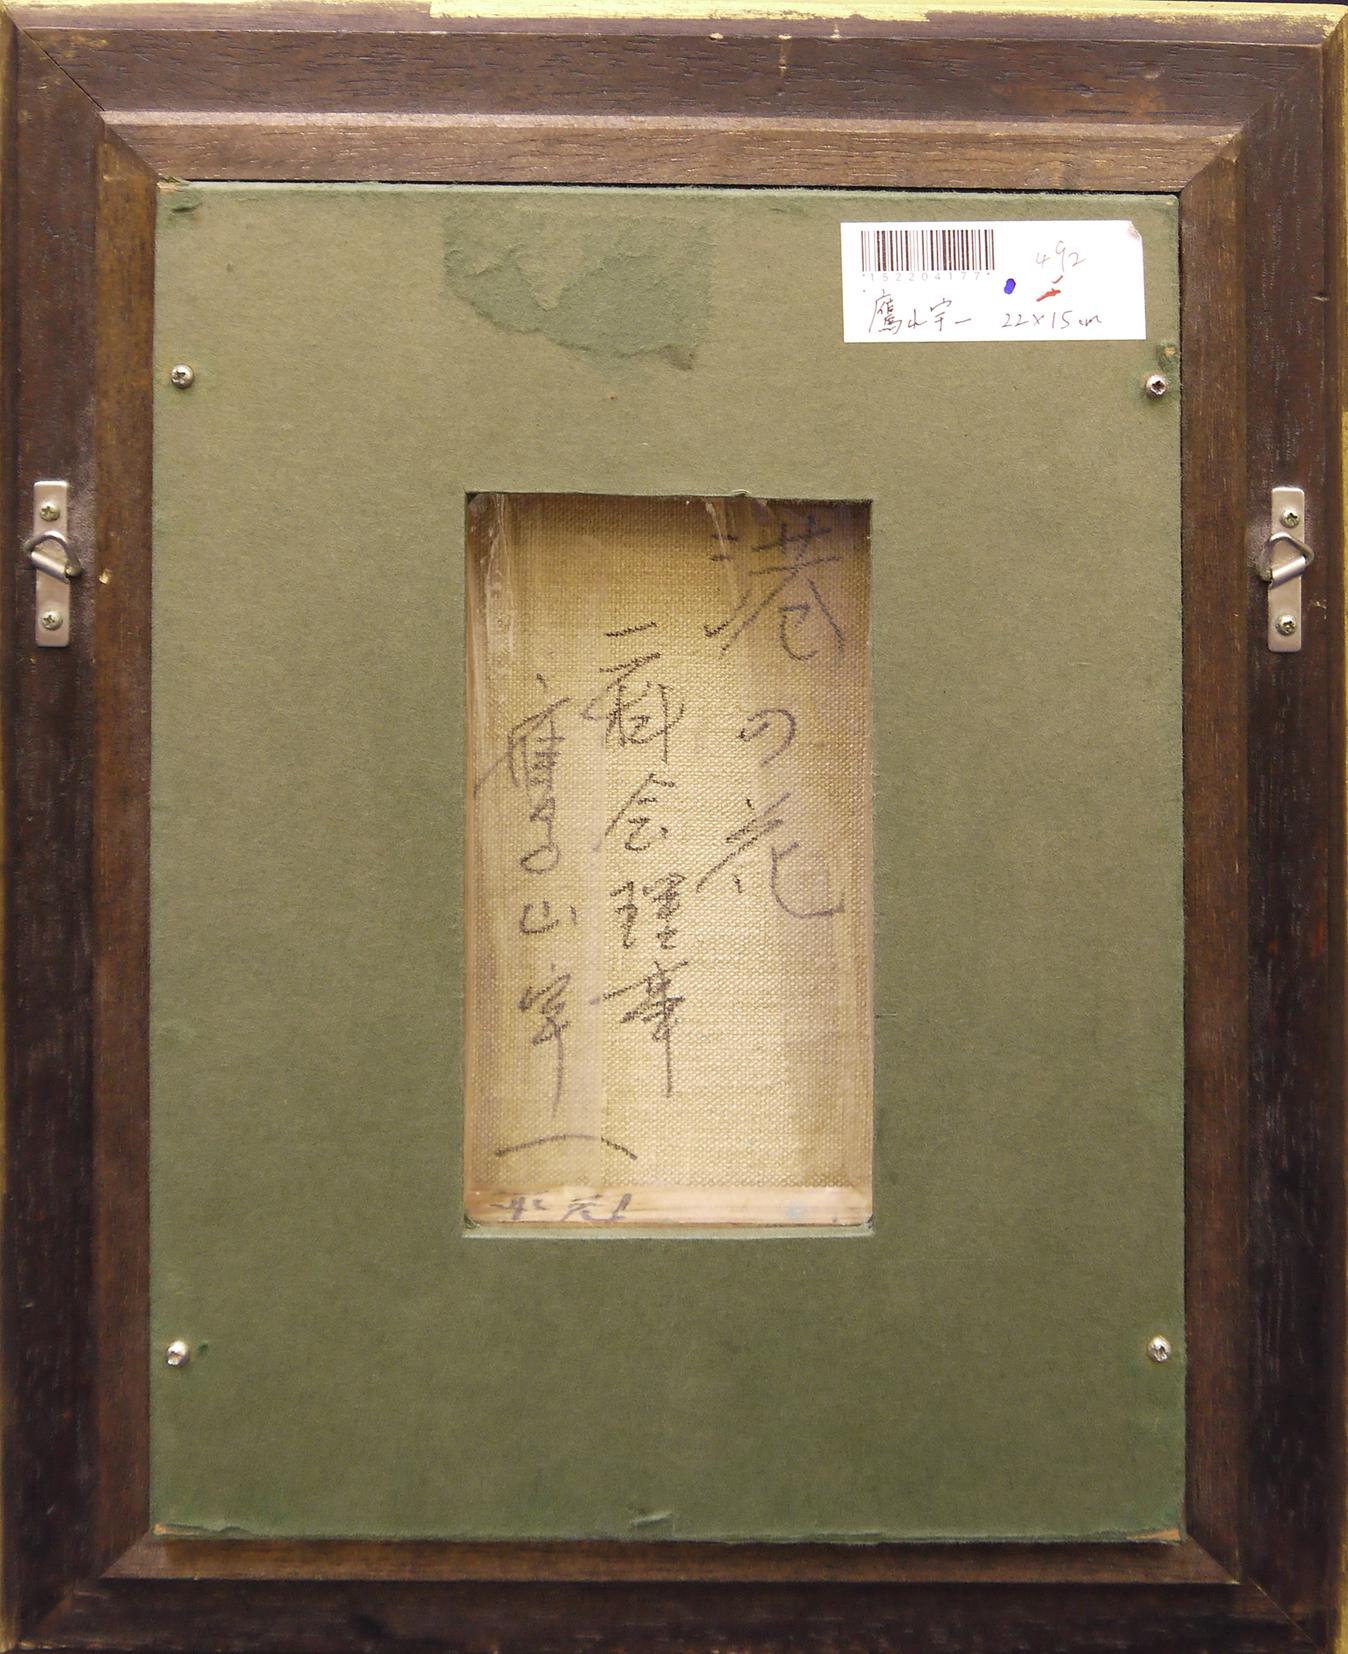 *1522204177*
492
鷹山宇一 22×15cm
港の花
二科会理事
鷹山宇一